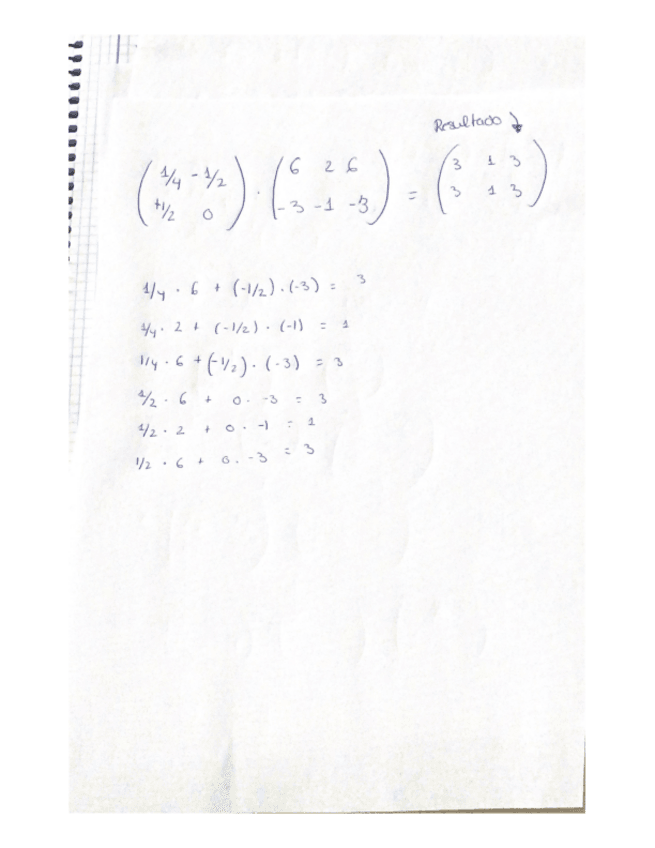 Resultado ↓
(1/4 -1/2) . (6 2 6) = (3 1 3)
(+1/2 0) (-3 -1 -3) (3 1 3)
1/4 · 6 + (-1/2) · (-3) = 3
1/4 · 2 + (-1/2) · (-1) = 1
1/4 · 6 + (-1/2) · (-3) = 3
1/2 · 6 + 0 · -3 = 3
1/2 · 2 + 0 · -1 = 1
1/2 · 6 + 0 · -3 = 3